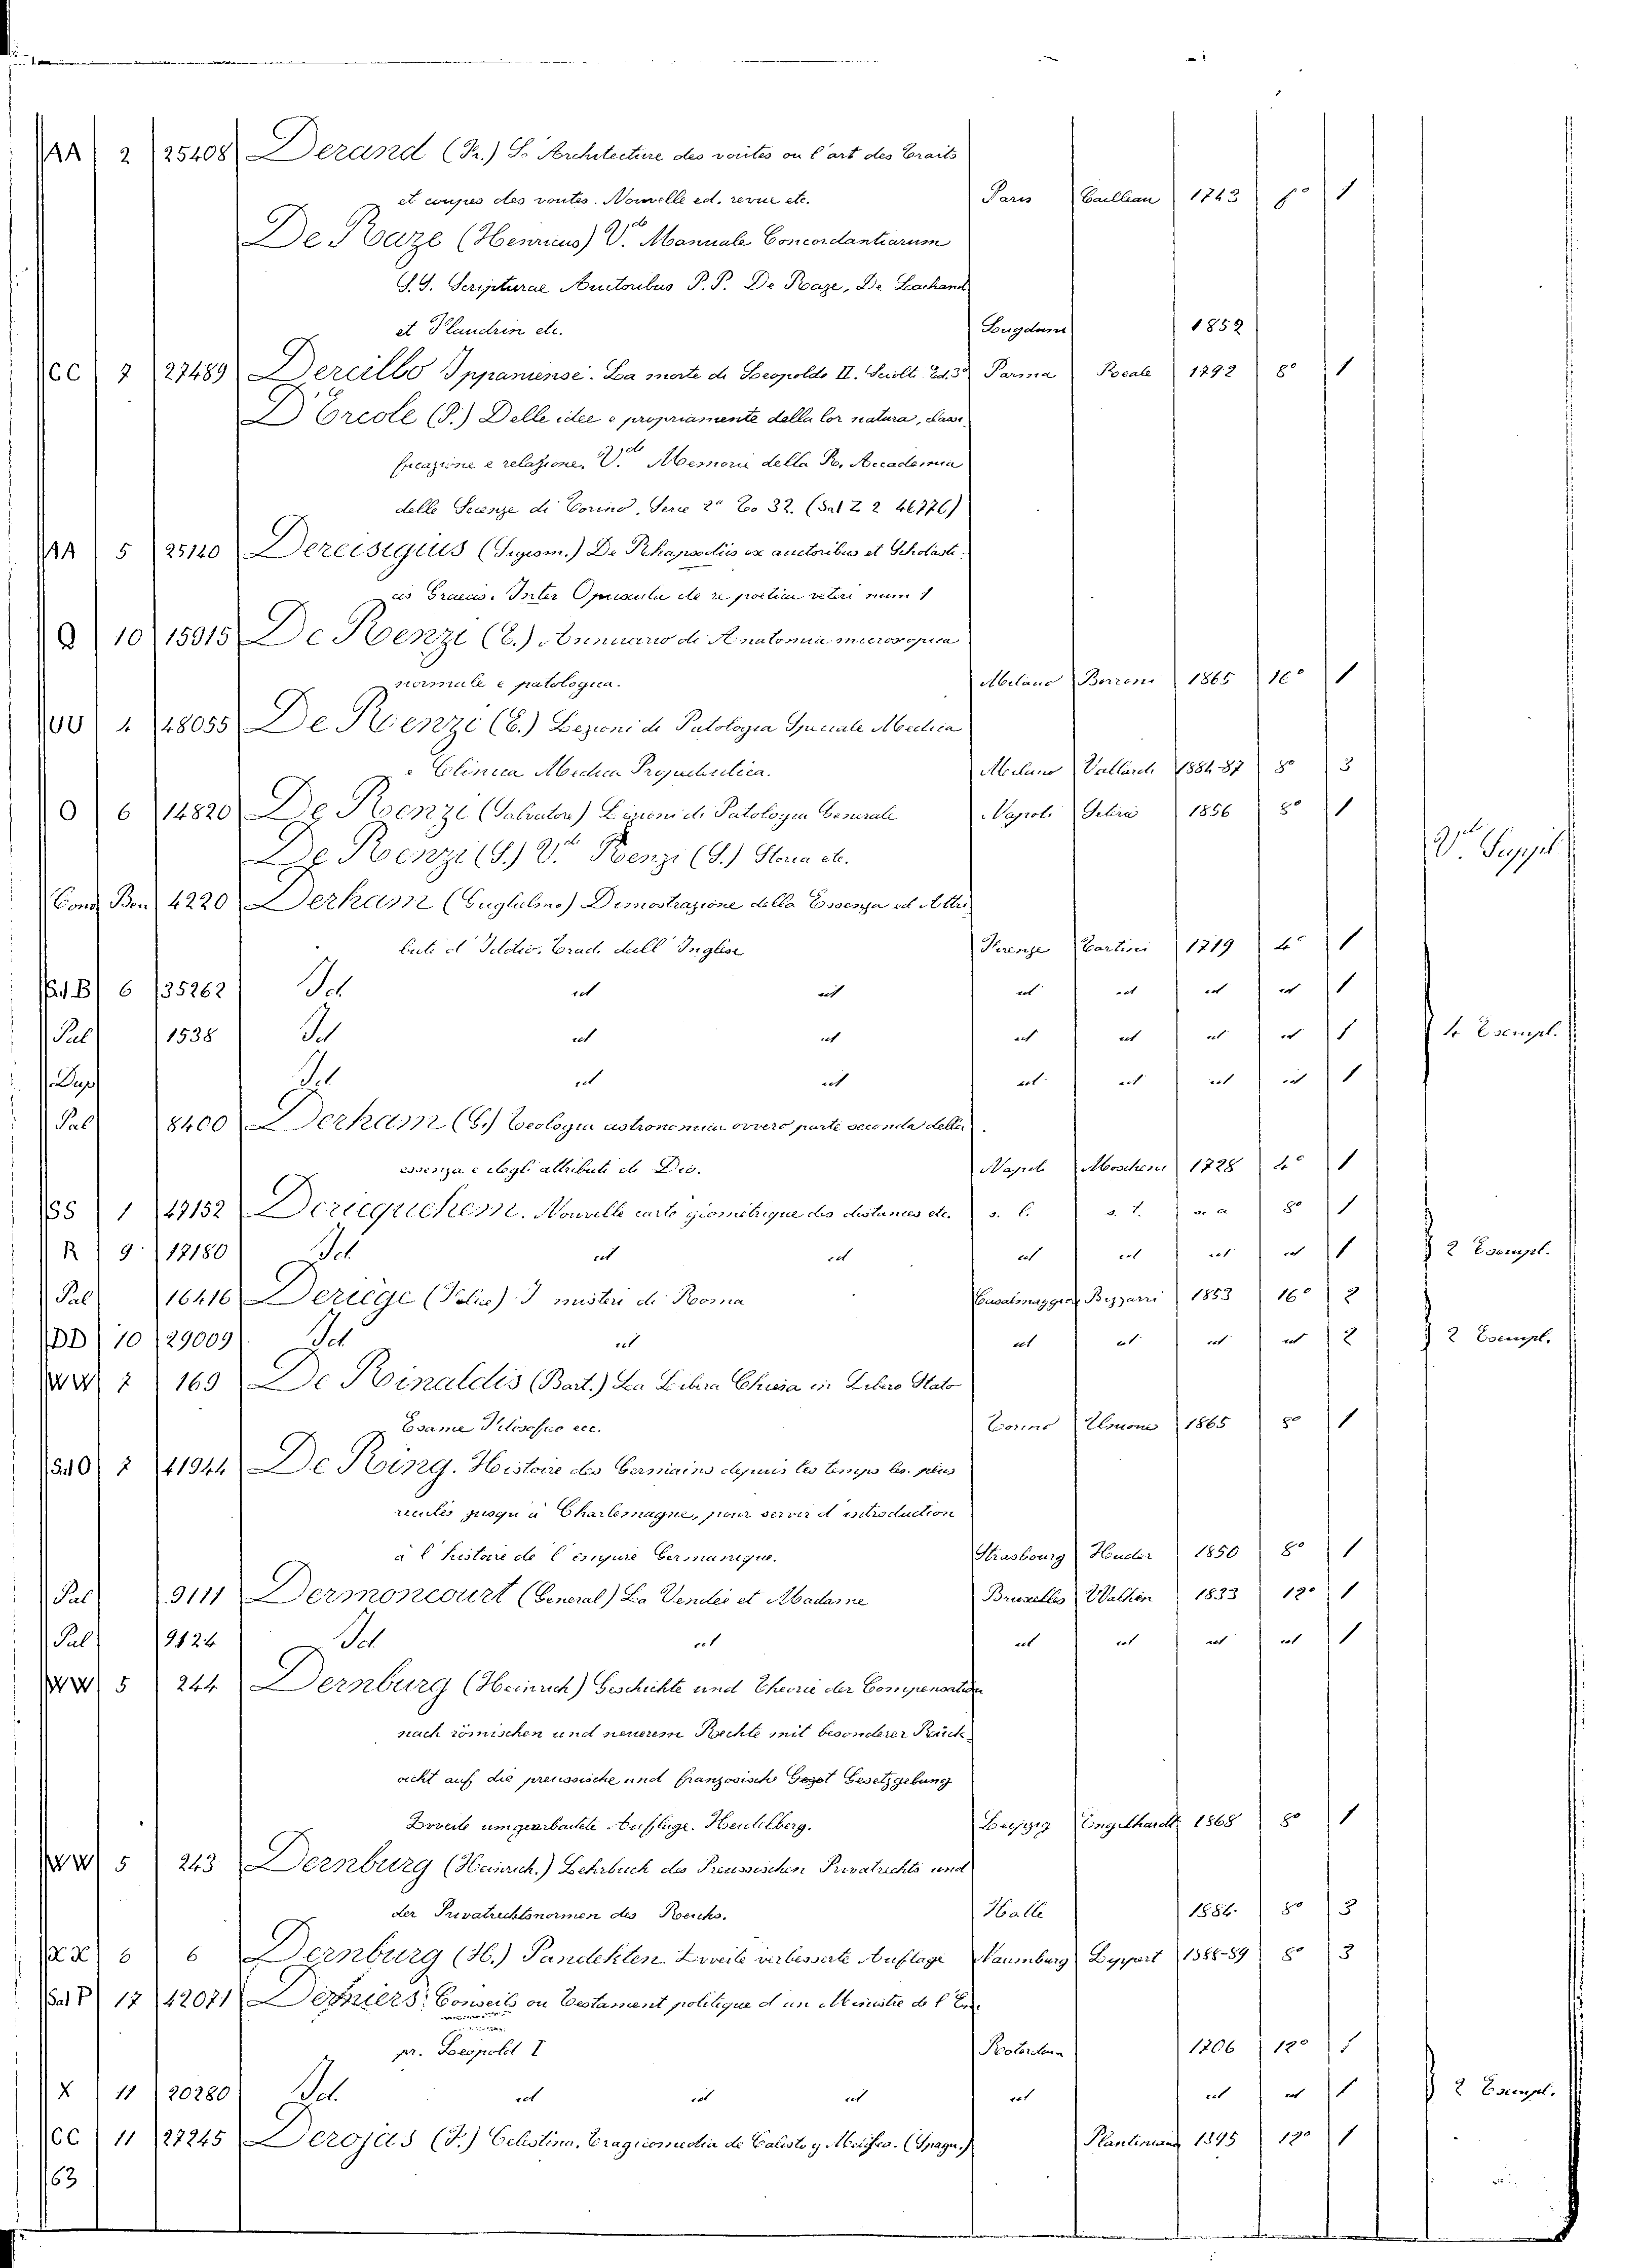 AA 2 25408 Derand (Fr.) L. Architecture des voutes ou l'art des traits
et coupes des voutes. Nouvelle ed. revue etc. Paris Cailleau 1743 f° 1
De Raze (Henricus) V.do Manuale Concordantiarum
S.S. Scripturae Auctoribus P.P. De Raze, De Lachand
et Flandrin etc. Lugduni 1852
CC 7 27489 Dercillo Ippaniense. La morte di Leopoldo II. Sciolti Ed. 3a Parma Reale 1792 8° 1
D'Ercole (P.) Delle idee e propriamente della lor natura, classi
ficazione e relazione. V.do Memorie della R. Accademia
delle Scienze di Torino, Serie 2a To 32. (Sal Z 2 46776)
AA 5 25140 Dereisigius (Sigism.) De Rhapsodiis ex auctoribus et Scholasti-
cis Graecis. Inter Opuscula de re poetica veteri num 1
Q 10 15915 De Renzi (E.) Annuario di Anatomia microscopica
normale e patologica. Milano Borroni 1865 16° 1
UU 4 48055 De Renzi (E.) Lezioni di Patologia Speciale Medica
e Clinica Medica Propedeutica. Milano Vallardi 1884-87 8° 3
O 6 14820 De Renzi (Salvatore) Lezioni di Patologia Generale Napoli 1856 8° 1
De Renzi (S.) V.do Renzi (S.) Storia etc. V.do Suppl.
Cons Ben 4220 Derham (Guglielmo) Dimostrazione della Essenza ed Attri
buti d'Iddio. Trad. dall'Inglese Firenze Tartini 1719 4° 1
Sal B 6 35262 Id id id id id id id 1
Pal 1538 Id id id id id id id 1 4 Esempl.
Dup Id id id id id id id 1
Pal 8400 Derham (G.) Teologia astronomica ovvero parte seconda della
essenza e degli attributi di Dio. Napoli Moscheni 1728 4° 1
SS 1 47152 Dericquehem. Nouvelle carte géométrique des distances etc. s. l. s. t. s. a 8° 1
R 9 17180 Id id id id id id id 1 2 Esempl.
Pal 16416 Deriège (Felice) I misteri di Roma Casalmaggiore Bizzarri 1853 16° 2
DD 10 29009 Id id id id id id 2 2 Esempl.
WW 7 169 De Rinaldis (Bart.) La Libera Chiesa in Libero Stato
Esame Filosofico ecc. Torino Unione 1865 8° 1
Sal O 7 41944 De Ring. Histoire des Germains depuis les temps les plus
reculés jusqu'à Charlemagne, pour servir d'introduction
à l'histoire de l'empire Germanique. Strasbourg Huder 1850 8° 1
Pal 9111 Dermoncourt (General) La Vendée et Madame Bruxelles Wathien 1833 12° 1
Pal 9124 Id id id id id id 1
WW 5 244 Dernburg (Heinrich) Geschichte und Theorie der Compensation
nach römischen und neuerem Rechte mit besonderer Rück
sicht auf die preussische und französische Gezet Gesetzgebung
Zweite umgearbeitete Auflage. Heidelberg. Leipzig Engelhardt 1868 8° 1
WW 5 243 Dernburg (Heinrich.) Lehrbuch des Preussischen Privatrechts und
der Privatrechtsnormen des Reichs. Halle 1884. 8° 3
XX 6 6 Dernburg (H.) Pandekten. Zweite verbesserte Auflage Naumburg Lippert 1888-89 8° 3
Sal P 17 42071 Derniers Conseils ou Testament politique d'un Ministre de l'Em
pr. Leopold I Roterdam 1706 12° 1
X 11 20280 Id. id id id id id id 1 2 Esempl.
CC 11 27245 Derojas (F.) Celestina. Tragicomedia de Calisto y Melibea. (Spagn.) Plantiniana 1595 12° 1
63